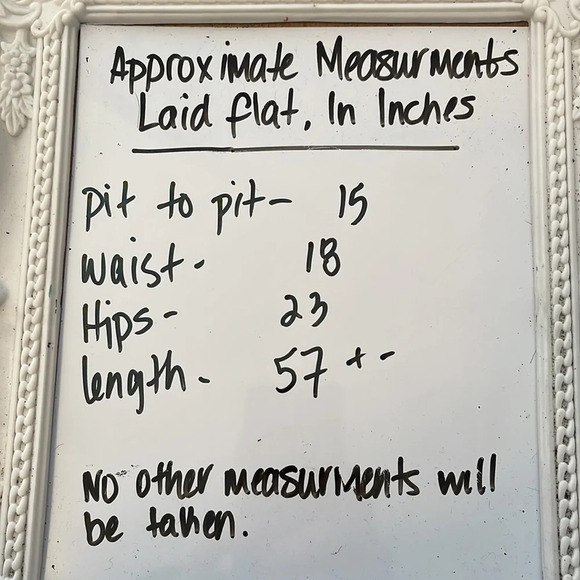 Approximate Measurments
Laid flat, In Inches
pit to pit- 15
waist- 18
Hips- 23
length- 57 + -
No other measurments will
be taken.